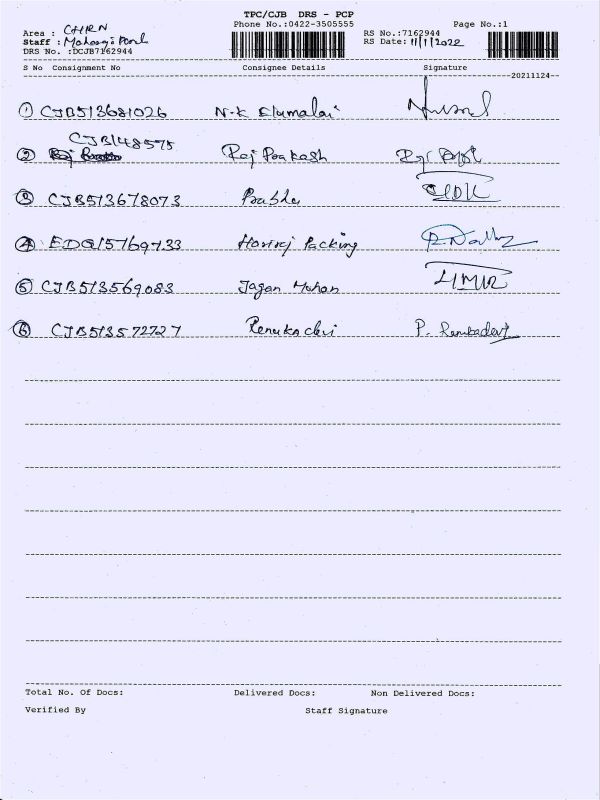 TPC/CJB DRS - PCP
Phone No.:0422-3505555 Page No.:1
Area : CHRN RS No.:7162944
Staff : RS Date: 11/1/2022
DRS No. :DCJB7162944
S No Consignment No Consignee Details Signature
20211124
① CJB513681026 N-K Elumalai
CJB148575
② Raj Prakash
③ CJB513678073 Prabhu
④ EDQ15769733 Hariraj Packing
⑤ CJB513569083 Jagan Mohan
⑥ CJB513572727 Renukadevi P. Renukadevi
Total No. Of Docs: Delivered Docs: Non Delivered Docs:
Verified By Staff Signature